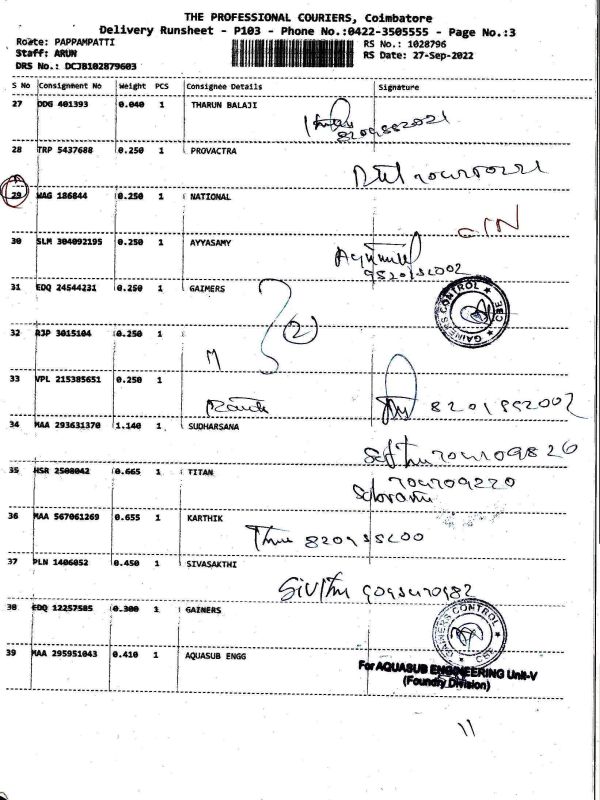 THE PROFESSIONAL COURIERS, Coimbatore
Delivery Runsheet - P103 - Phone No.:0422-3505555 - Page No.:3
Route: PAPPAMPATTI
RS No.: 1028796
Staff: ARUN
RS Date: 27-Sep-2022
DRS No.: DCJB102879603
S No Consignment No Weight PCS Consignee Details Signature
27 DDG 401393 0.040 1 THARUN BALAJI
8209882021
28 TRP 5437688 0.250 1 PROVACTRA
29 WAG 186844 0.250 1 NATIONAL
30 SLM 304092195 0.250 1 AYYASAMY
31 EDQ 24544231 0.250 1 GAIMERS
GAINERS CONTROL
CBE
2
32 RJP 3015104 0.250 1
M
33 VPL 215385651 0.250 1
34 MAA 293631370 1.140 1 SUDHARSANA
35 HSR 2508042 0.665 1 TITAN
36 MAA 567061269 0.655 1 KARTHIK
37 PLN 1406052 0.450 1 SIVASAKTHI
38 EDQ 12257585 0.300 1 GAINERS
GAINERS CONTROL
CBE
39 MAA 295951043 0.410 1 AQUASUB ENGG
For AQUASUB ENGINEERING Unit-V
(Foundry Division)
11